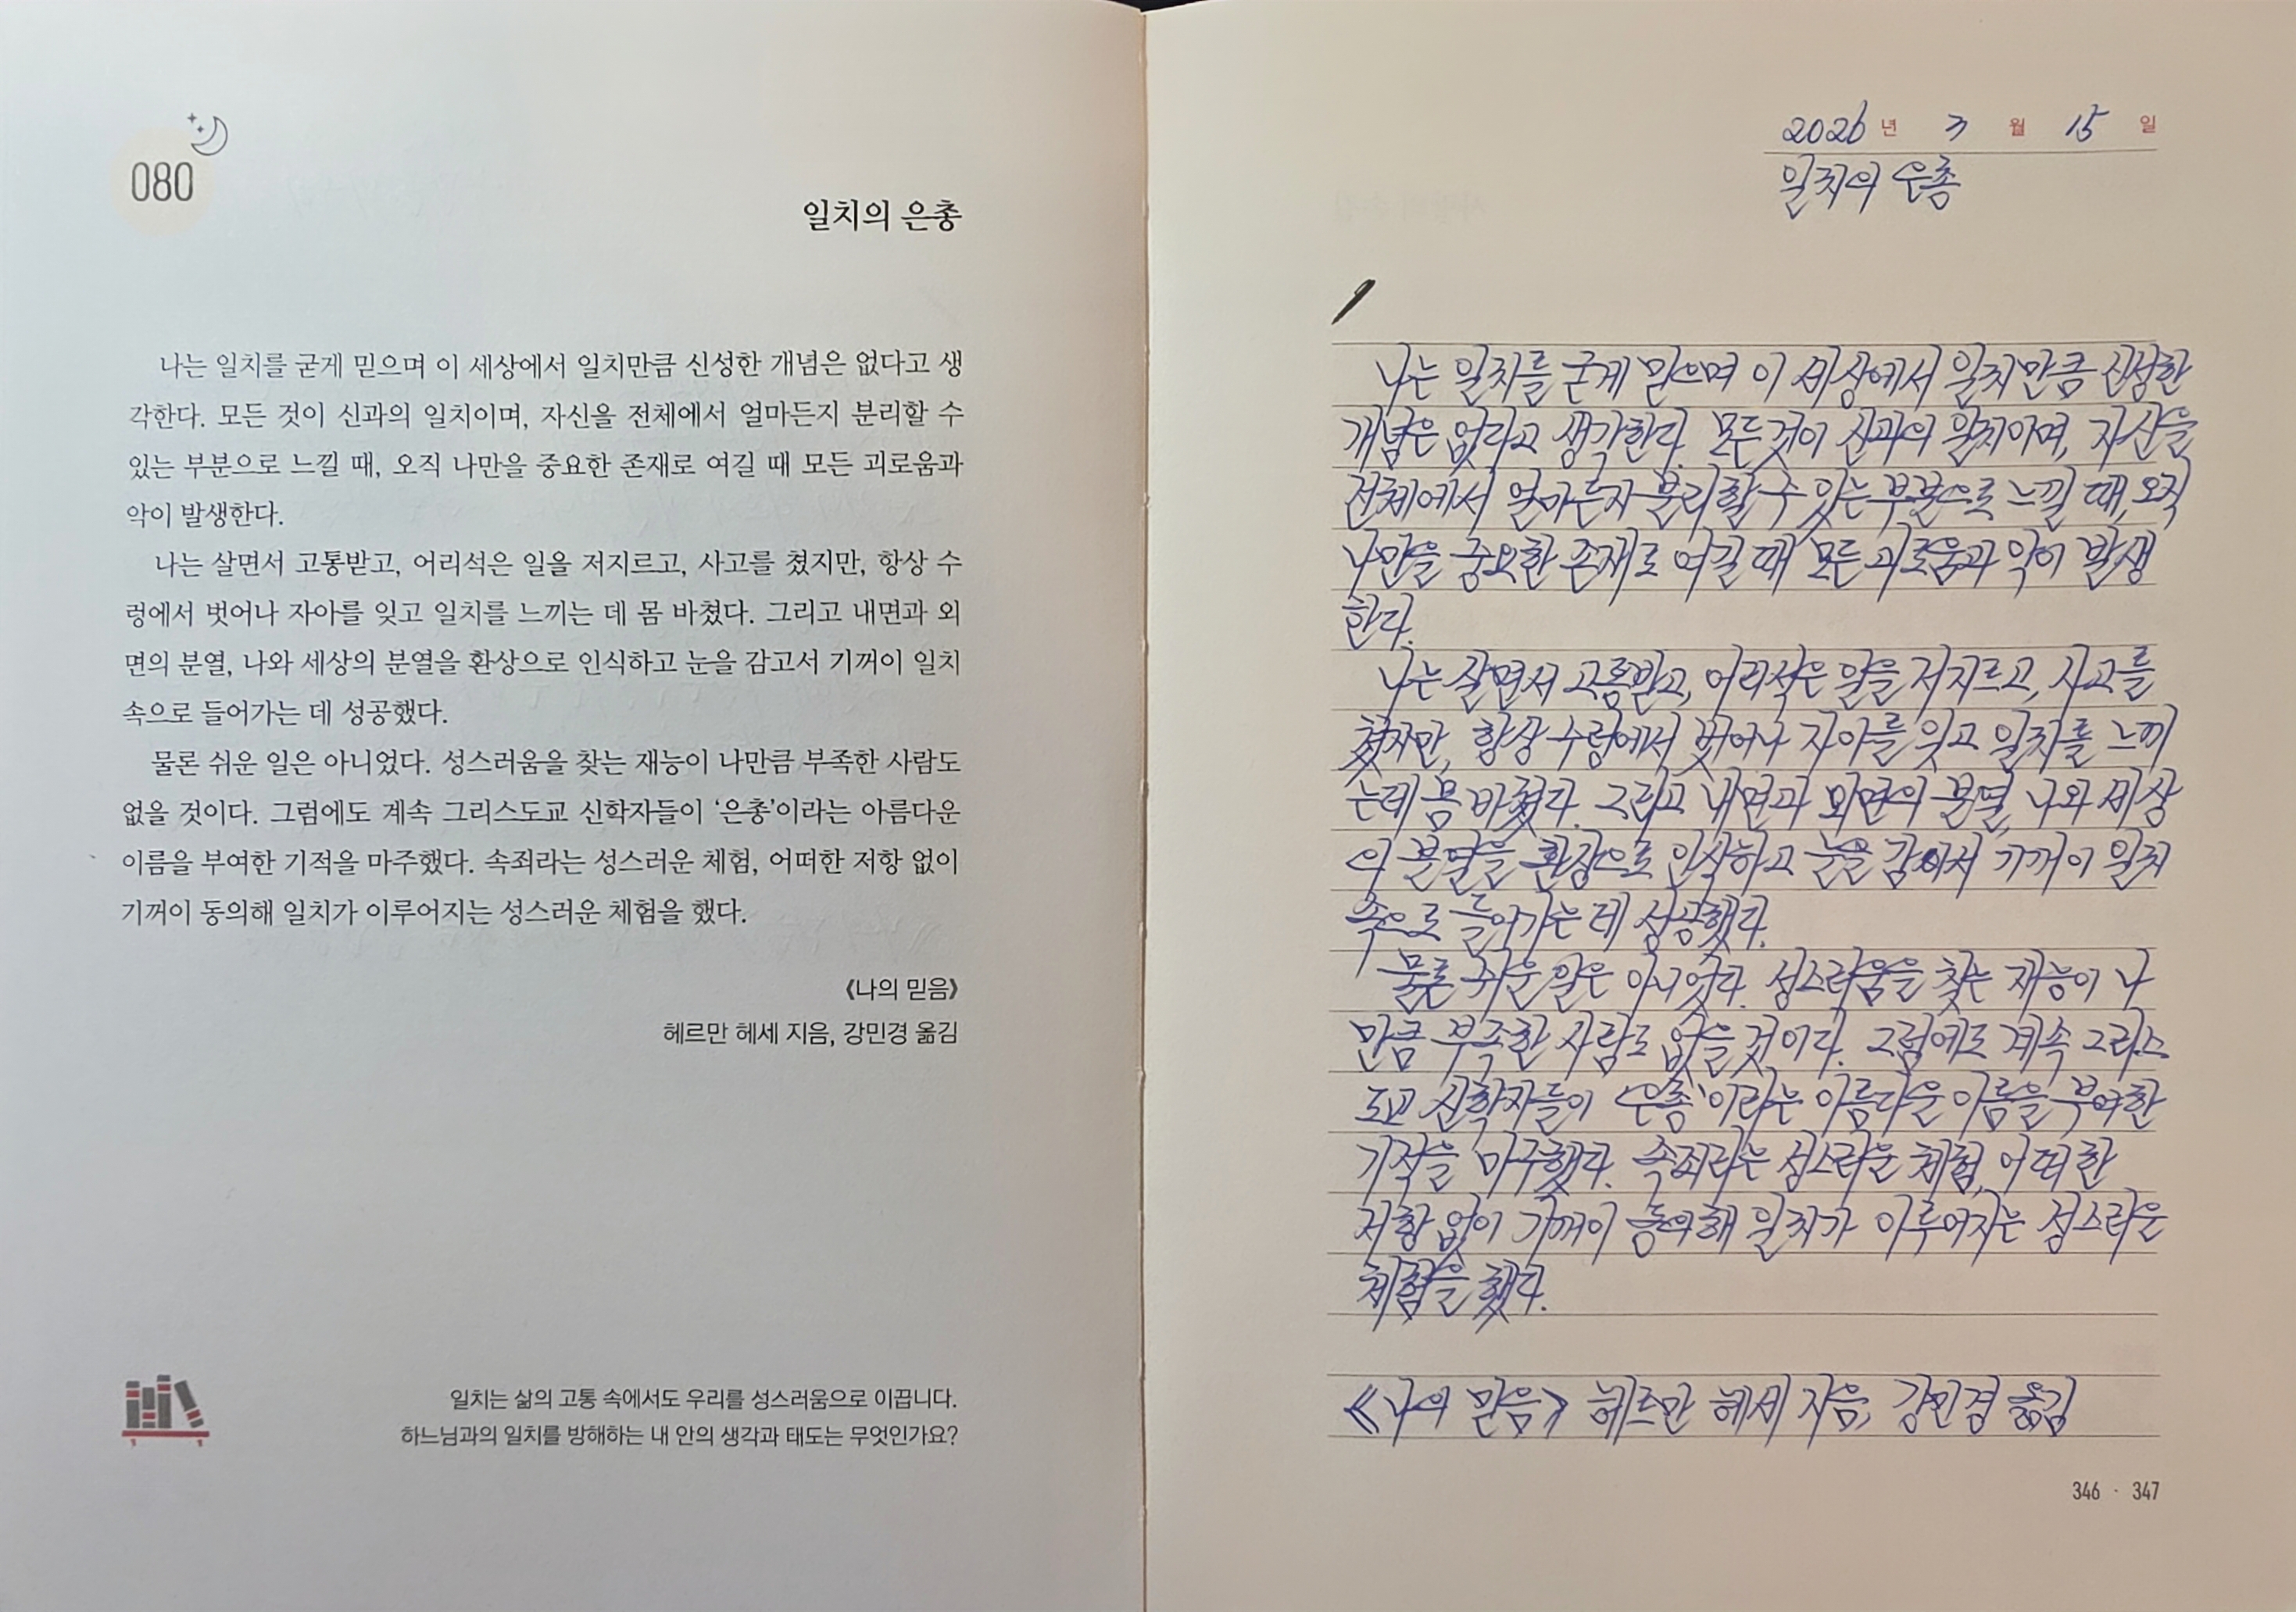 080
일치의 은총
나는 일치를 굳게 믿으며 이 세상에서 일치만큼 신성한 개념은 없다고 생
각한다. 모든 것이 신과의 일치이며, 자신을 전체에서 얼마든지 분리할 수
있는 부분으로 느낄 때, 오직 나만을 중요한 존재로 여길 때 모든 괴로움과
악이 발생한다.
나는 살면서 고통받고, 어리석은 일을 저지르고, 사고를 쳤지만, 항상 수
렁에서 벗어나 자아를 잊고 일치를 느끼는 데 몸 바쳤다. 그리고 내면과 외
면의 분열, 나와 세상의 분열을 환상으로 인식하고 눈을 감고서 기꺼이 일치
속으로 들어가는 데 성공했다.
물론 쉬운 일은 아니었다. 성스러움을 찾는 재능이 나만큼 부족한 사람도
없을 것이다. 그럼에도 계속 그리스도교 신학자들이 ‘은총’이라는 아름다운
이름을 부여한 기적을 마주했다. 속죄라는 성스러운 체험, 어떠한 저항 없이
기꺼이 동의해 일치가 이루어지는 성스러운 체험을 했다.
《나의 믿음》
헤르만 헤세 지음, 강민경 옮김
일치는 삶의 고통 속에서도 우리를 성스러움으로 이끕니다.
하느님과의 일치를 방해하는 내 안의 생각과 태도는 무엇인가요?
2026 년 3 월 15 일
일치의 은총
나는 일치를 굳게 믿으며 이 세상에서 일치만큼 신성한
개념은 없다고 생각한다. 모든 것이 신과의 일치이며, 자신을
전체에서 얼마든지 분리할 수 있는 부분으로 느낄 때, 오직
나만을 중요한 존재로 여길 때 모든 괴로움과 악이 발생
한다.
나는 살면서 고통받고, 어리석은 일을 저지르고, 사고를
쳤지만, 항상 수렁에서 벗어나 자아를 잊고 일치를 느끼
는데 몸 바쳤다. 그리고 내면과 외면의 분열, 나와 세상
의 분열을 환상으로 인식하고 눈을 감고서 기꺼이 일치
속으로 들어가는 데 성공했다.
물론 쉬운 일은 아니었다. 성스러움을 찾는 재능이 나
만큼 부족한 사람도 없을 것이다. 그럼에도 계속 그리스
도교 신학자들이 '은총'이라는 아름다운 이름을 부여한
기적을 마주했다. 속죄라는 성스러운 체험, 어떠한
저항 없이 기꺼이 동의해 일치가 이루어지는 성스러운
체험을 했다.
《나의 믿음》 헤르만 헤세 지음, 강민경 옮김
346 · 347